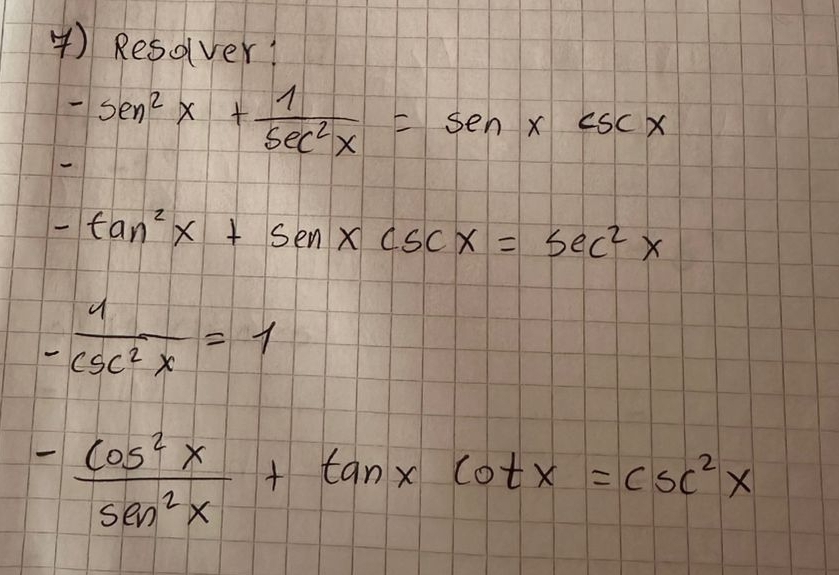 7) Resolver:
- sen² x + 1/sec² x = sen x csc x
-
- tan² x + sen x csc x = sec² x
- 1/csc² x = 1
- cos² x/sen² x + tan x cot x = csc² x